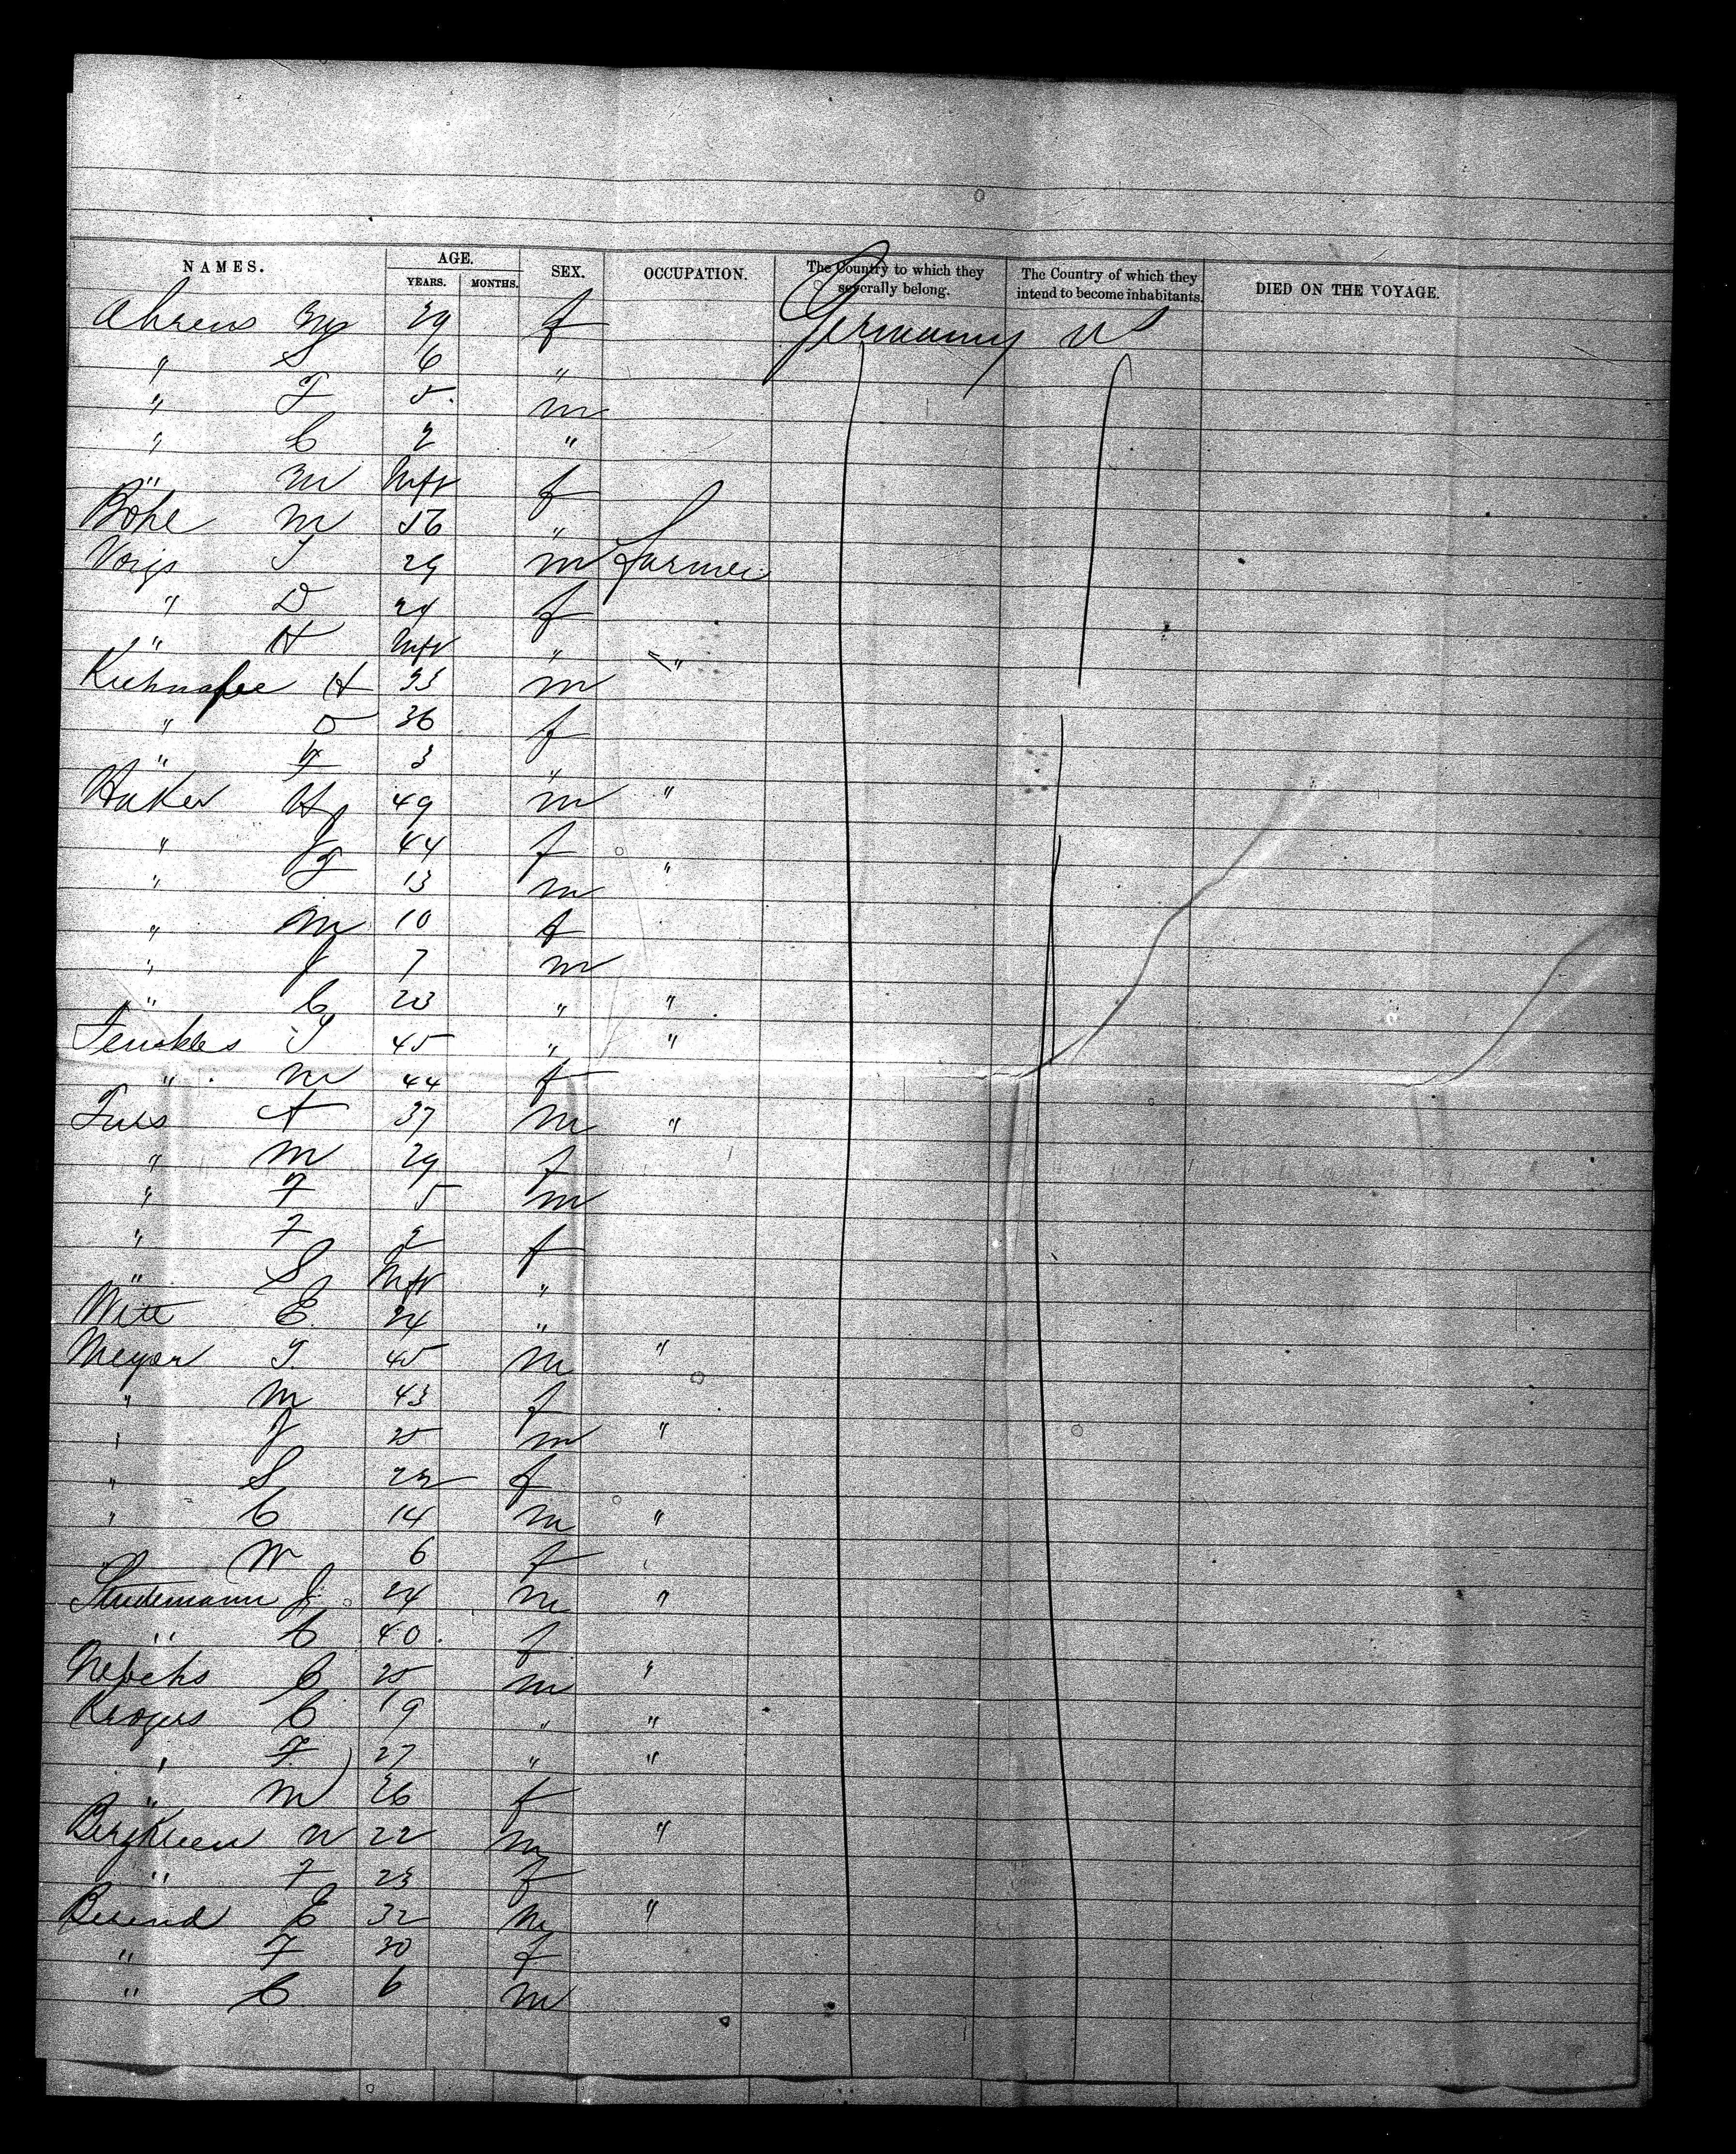 NAMES. AGE. YEARS. MONTHS. SEX. OCCUPATION. The Country to which they severally belong. The Country of which they intend to become inhabitants. DIED ON THE VOYAGE.
Ahrens 29 f Germany U S
" S 6 "
" F 5 m
" C 2 "
" M Inft f
Böhe M "
Voigs J 29 m Farmer
" D 24 f
" H Inft "
H 33 m "
" D 36 f
" F 3 "
Haker H 49 m "
" J 44 f
" J 13 m "
" M 10 f
" J 7 m
" C 23 " "
J 45 " "
" M 44 f
A 37 m "
" M 29 f
" F 5 m
" F 2 f
" S Inft "
Witt E. 24 "
Meyer J. 45 m "
" M 43 f
" J 25 m "
" S 22 f
" C 14 m "
" W 6 f
Studemann J 24 m "
" C 40 f
C 25 m "
Krogers C 19 " "
" F 27 " "
" M 26 f
N 22 m "
" F 23 f
Berend E 32 m "
" F 30 f
" C 6 m